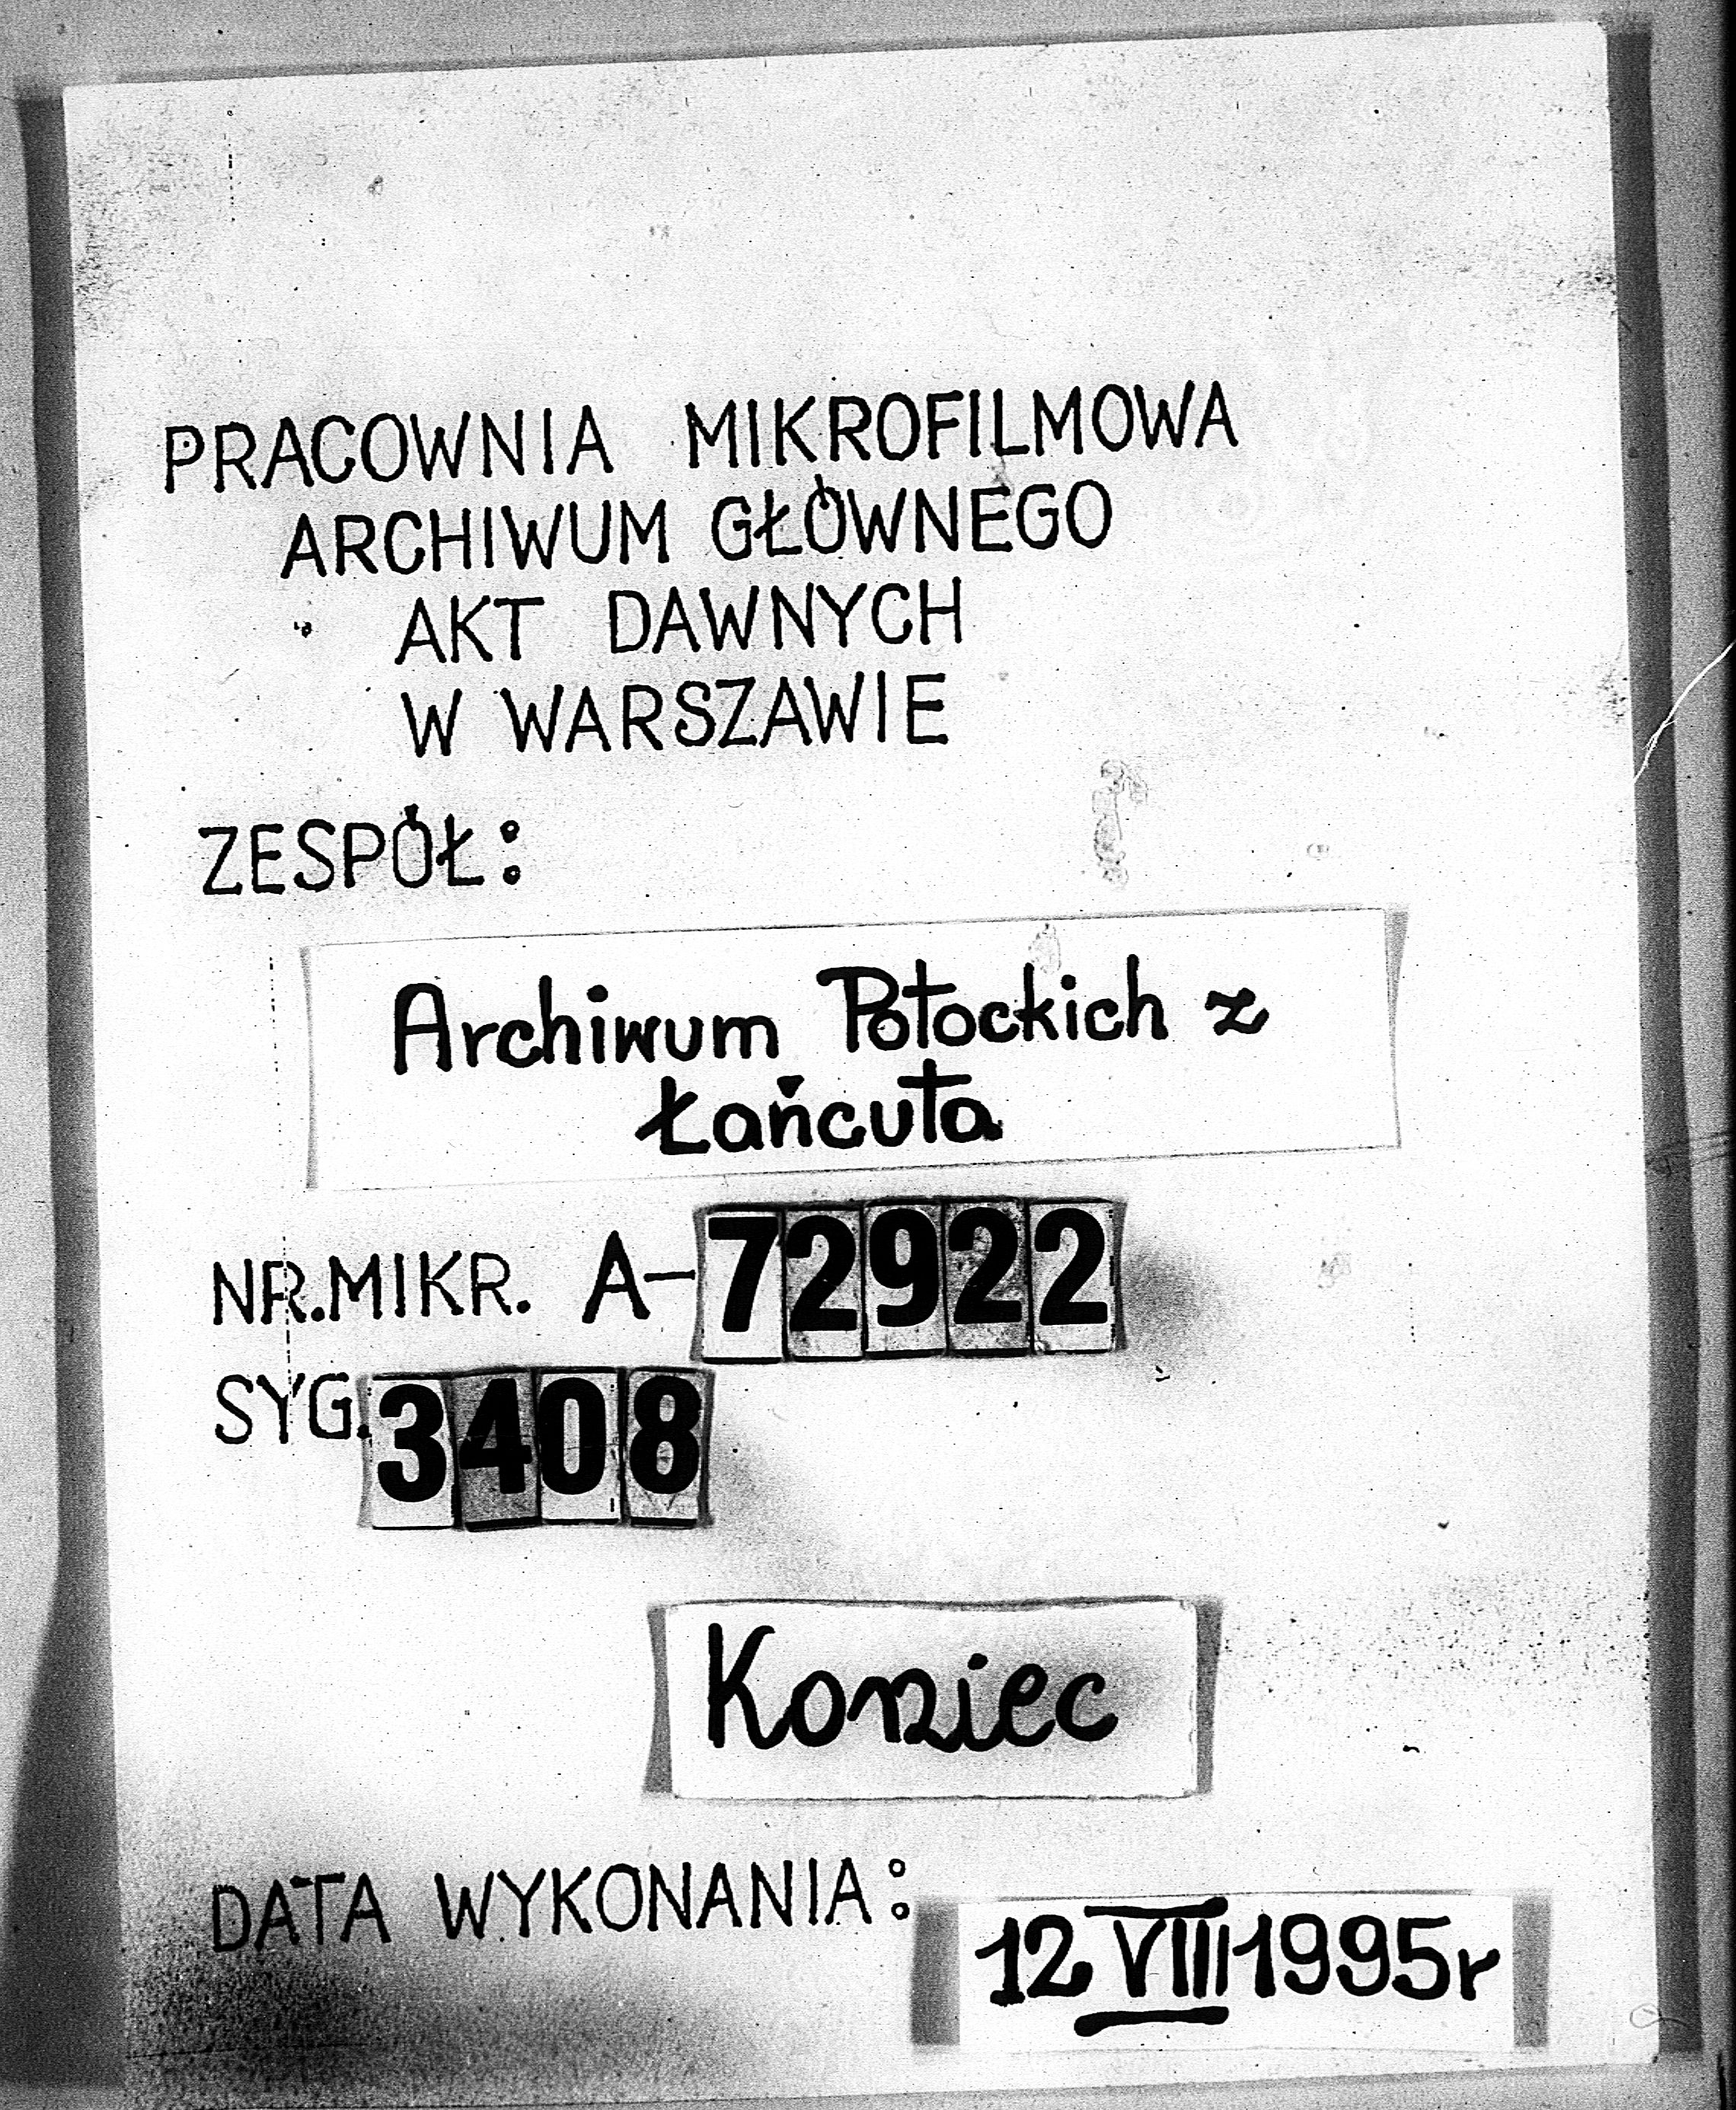 PRACOWNIA MIKROFILMOWA
ARCHIWUM GŁÓWNEGO
AKT DAWNYCH
W WARSZAWIE
ZESPÓŁ:
Archiwum Potockich z
Łańcuta
NR.MIKR. A-72922
SYG. 3408
Koniec
DATA WYKONANIA: 12 VIII 1995r